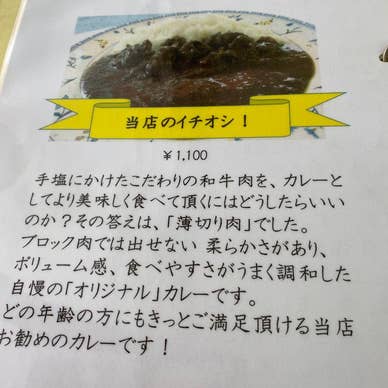 当店のイチオシ！
￥1,100
手塩にかけたこだわりの和牛肉を、カレーと
してより美味しく食べて頂くにはどうしたらいい
のか？その答えは、「薄切り肉」でした。
ブロック肉では出せない 柔らかさがあり、
ボリューム感、食べやすさがうまく調和した
自慢の「オリジナル」カレーです。
どの年齢の方にもきっとご満足頂ける当店
お勧めのカレーです！